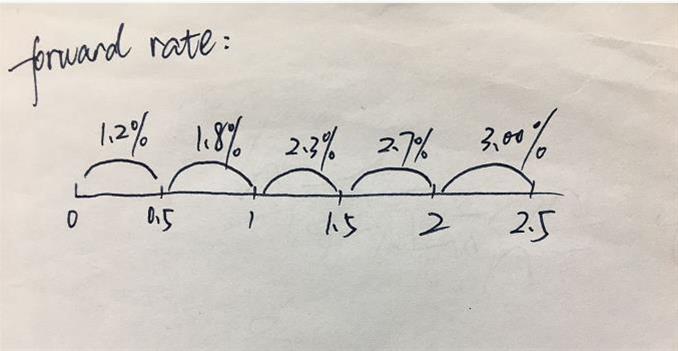 forward rate:
1.2% 1.8% 2.3% 2.7% 3.00%
0 0.5 1 1.5 2 2.5